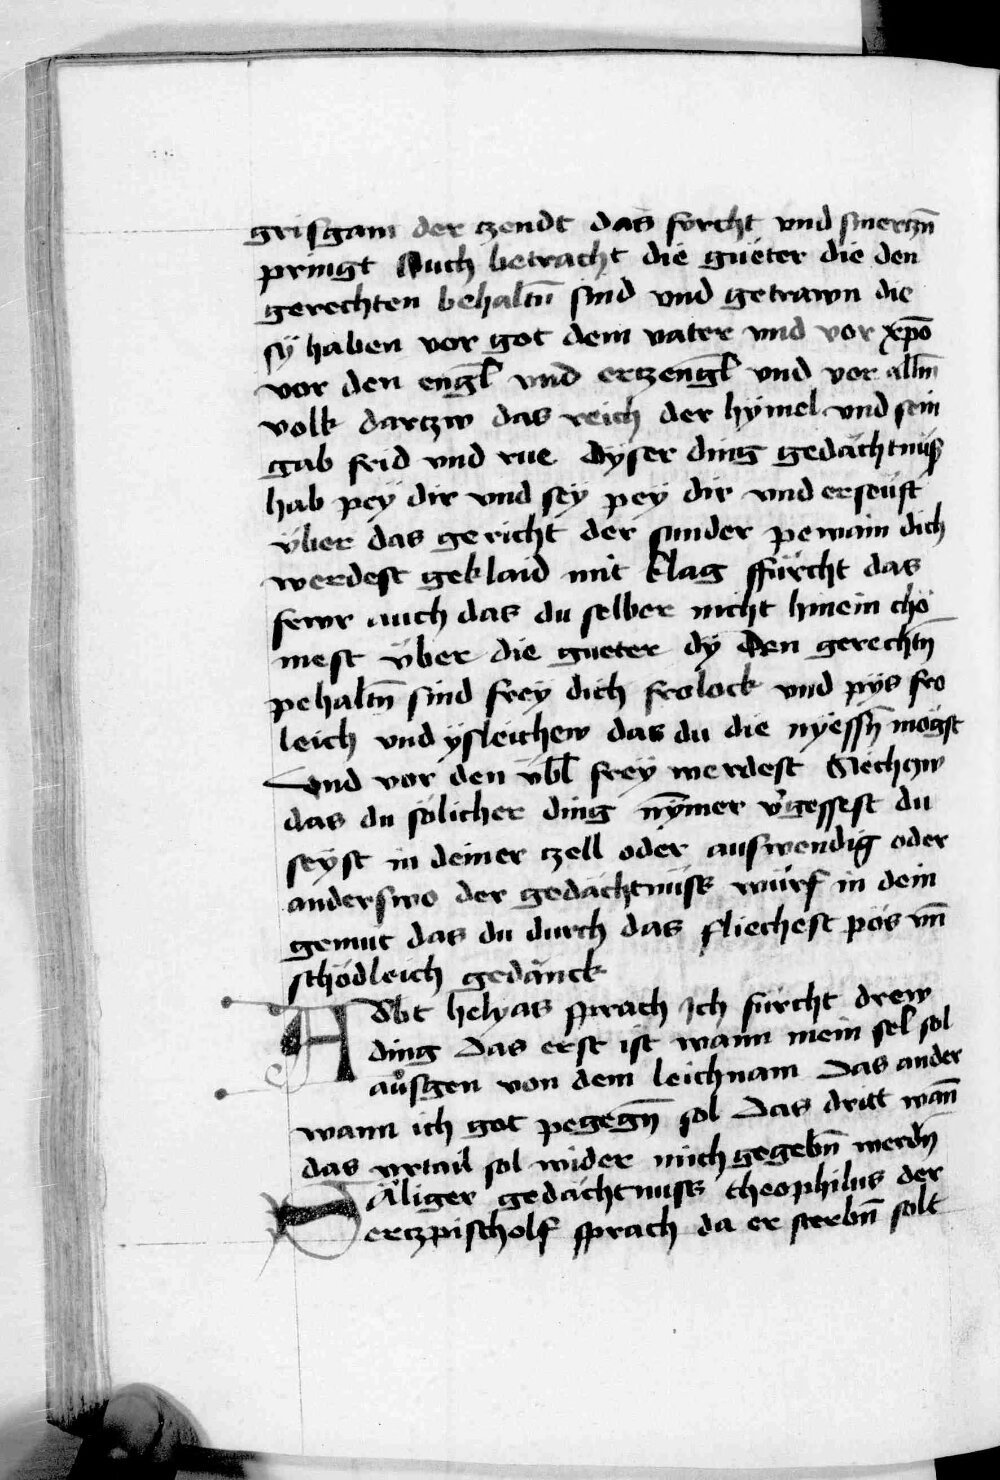 grisgam der zendt das forcht vnd smerczn̄
pringt Auch betracht die güeter die den
gerechten behaltn̄ sind vnd getrawn die
sÿ haben vor got dem vater vnd vor xp̄o
vor den engl̄ vnd ertzengl̄ vnd vor allm̄
volk dartzw das reich der hÿmel vnd sein
gab frid vnd rue Dÿser ding gedächtnüß
hab peÿ dir vnd seÿ peÿ dir vnd erseüft
über das gericht der sunder pewain dich
werdest geklaid mit klag ffürcht das
fewr auch das du selber nicht hinein chö
mest über die gueter dÿ den gerechtn̄
pehaltn̄ sind freÿ dich frolock vnd pÿs fro
leich vnd ÿsleichew das du die nyëssn̄ mögst
Vnd vor den vbl̄ freÿ werdest Siech zw
das du sölicher ding nȳmer v̓gessest du
seÿst in deiner zell oder auswendig oder
anderswo der gedächtnüss würf in dein
gemüt das du durch das fliechest pös vn̄
schödleich gedänck
Abt helyas sprach Ich fürcht drew
ding Das erst ist wann mein sel sol
aůsgen von dem leichnam Das ander
wann ich got pegegn̄ sol Das dritt wan̄
das vrtail sol wider mich gegebn̄ werdn̄
Säliger gedächtnuss theophilus der
ertzpischolf sprach da er sterbn̄ solt